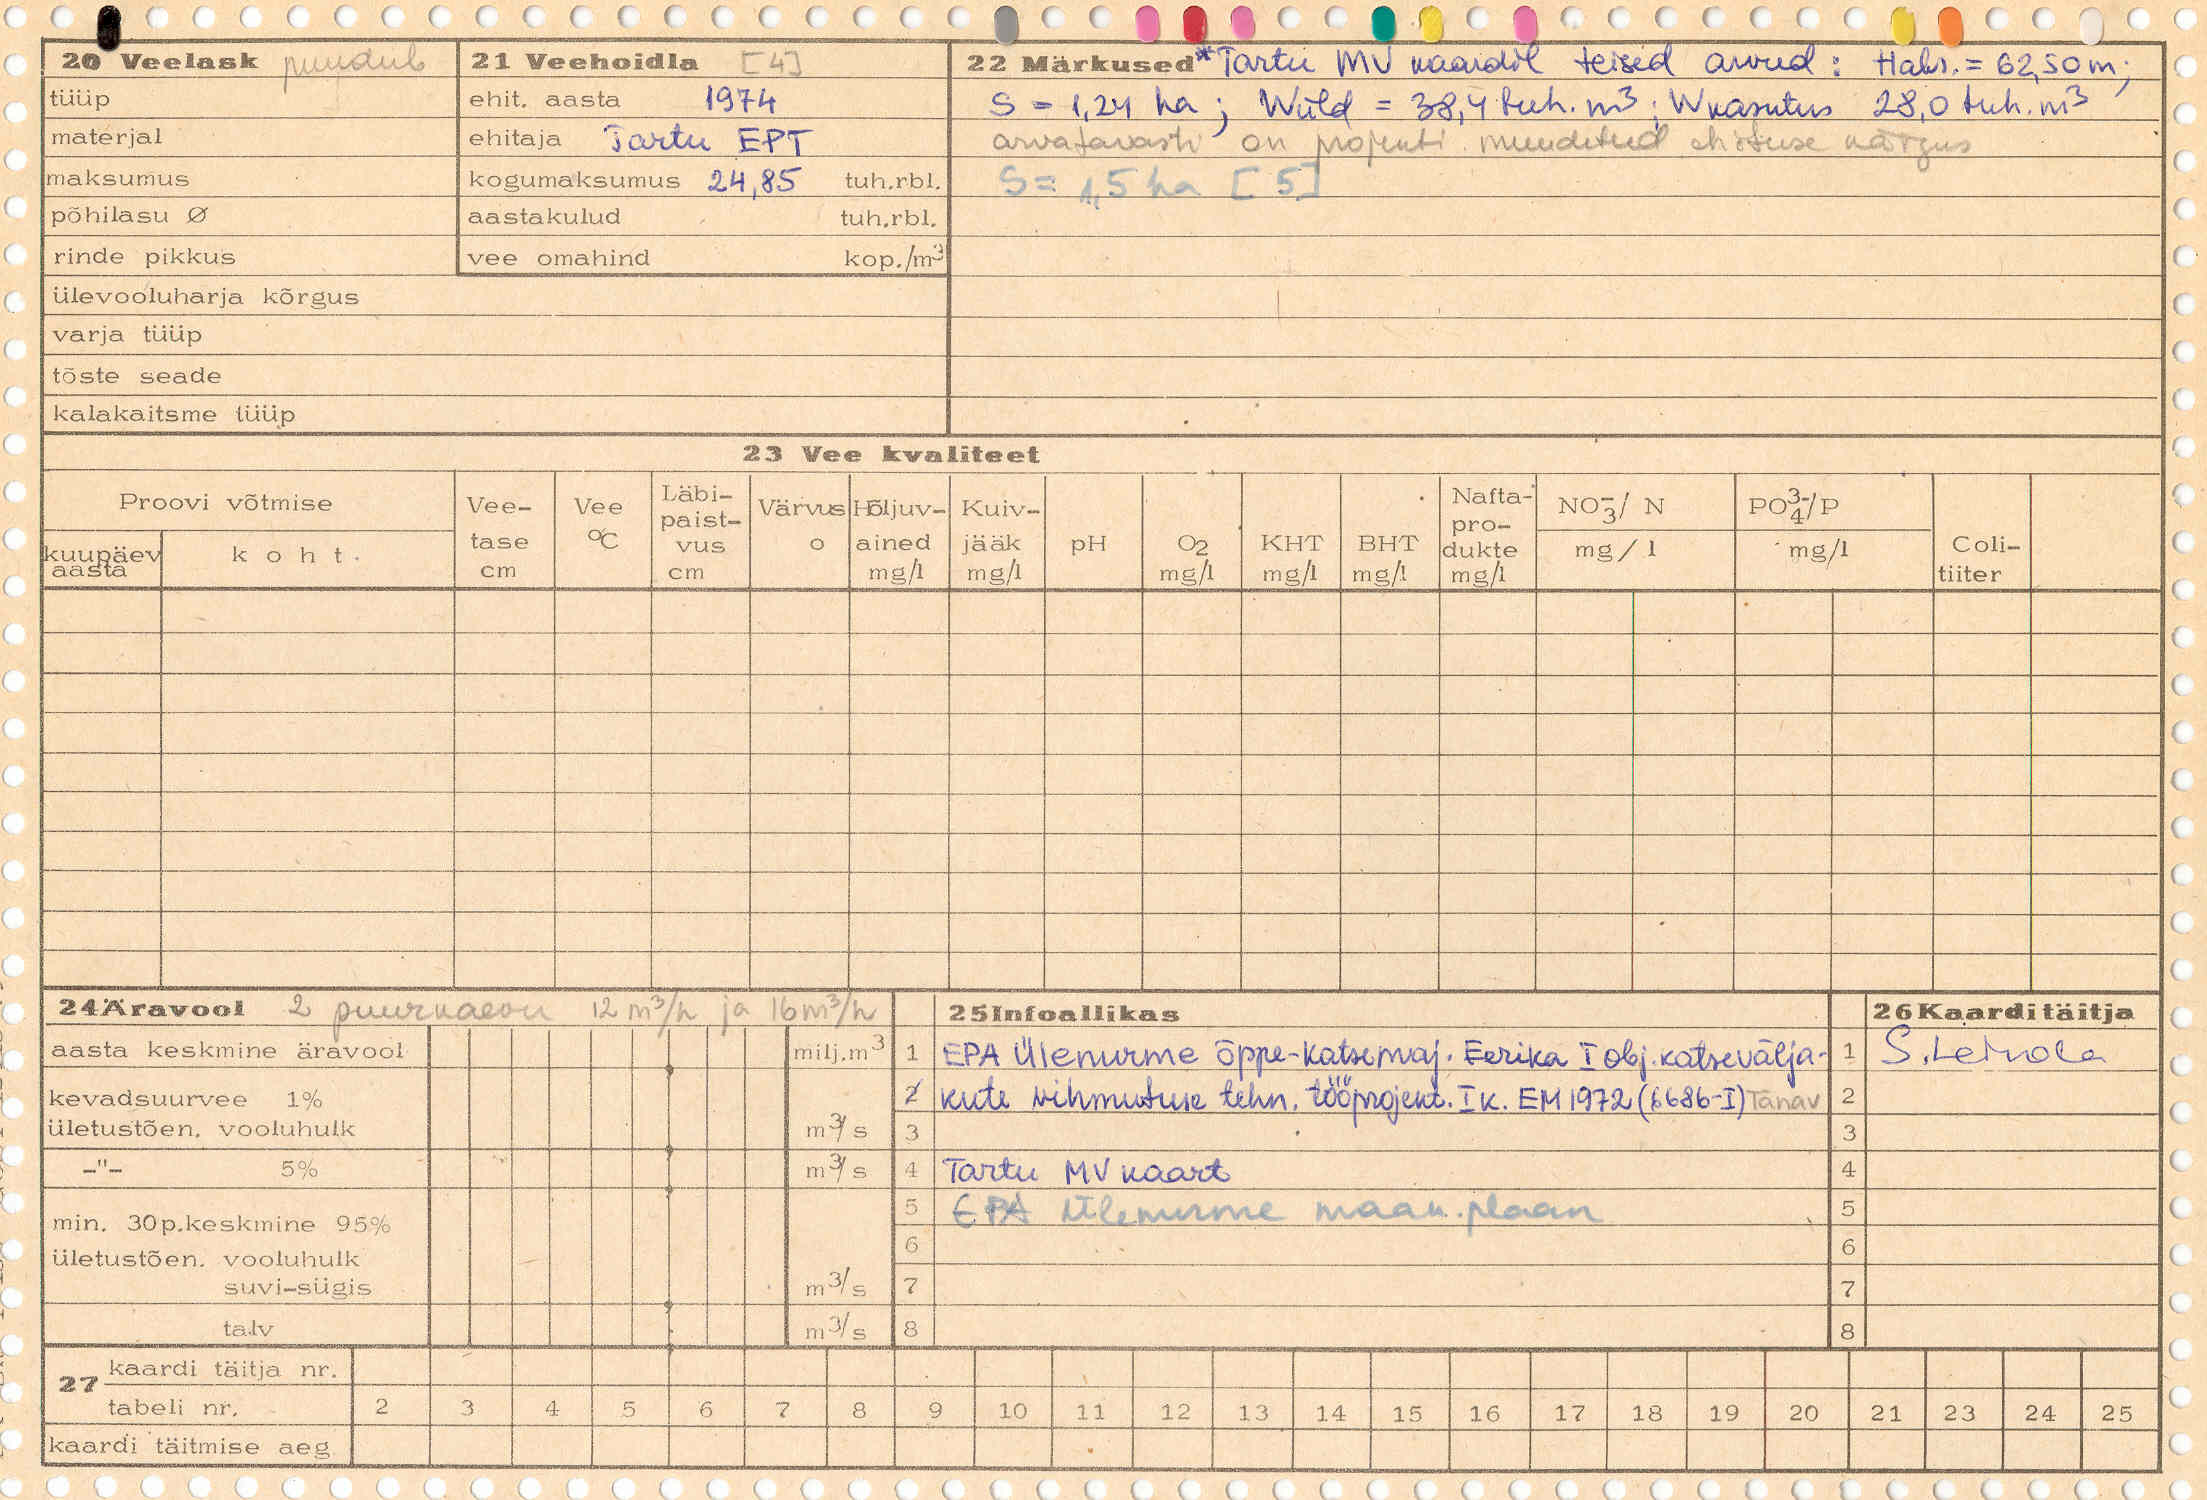 20 Veelask puudub
tüüp
materjal
maksumus
põhilasu Ø
rinde pikkus
ülevooluharja kõrgus
varja tüüp
tõste seade
kalakaitsme tüüp
21 Veehoidla [4]
ehit. aasta 1974
ehitaja Tartu EPT
kogumaksumus 24,85 tuh.rbl.
aastakulud tuh.rbl.
vee omahind kop./m³
22 Märkused *Tartu MV kaardil teised arvud: Habs. = 62,50 m;
S = 1,24 ha; Wüld = 38,4 tuh. m³; Wkasutus 28,0 tuh. m³
arvatavasti on projekti muudetud ehituse käigus
S = 1,5 ha [5]
23 Vee kvaliteet
Proovi võtmise
kuupäev aasta
koht.
Vee-tase cm
Vee °C
Läbi-paist-vus cm
Värvus o
Hõljuv-ained mg/l
Kuiv-jääk mg/l
pH
O2 mg/l
KHT mg/l
BHT mg/l
Nafta-pro-dukte mg/l
NO3-/ N mg/l
PO4 3-/P mg/l
Coli-tiiter
24 Äravool 2 puurkaevu 12 m³/h ja 16 m³/h
aasta keskmine äravool milj.m³
kevadsuurvee 1%
ületustõen. vooluhulk m³/s
-"- 5% m³/s
min. 30p.keskmine 95%
ületustõen. vooluhulk
suvi-sügis m³/s
talv m³/s
25 Infoallikas
1 EPA Ülenurme õppe-katsemaj. Eerika I obj. katsevälja-
2 kute vihmutuse tehn. tööprojekt. I k. EM 1972 (6686-I) Tänav
3
4 Tartu MV kaart
5 EPA Ülenurme maak. plaan
6
7
8
26 Kaardi täitja
1 S. Leinola
2
3
4
5
6
7
8
27 kaardi täitja nr.
tabeli nr. 2 3 4 5 6 7 8 9 10 11 12 13 14 15 16 17 18 19 20 21 23 24 25
kaardi täitmise aeg